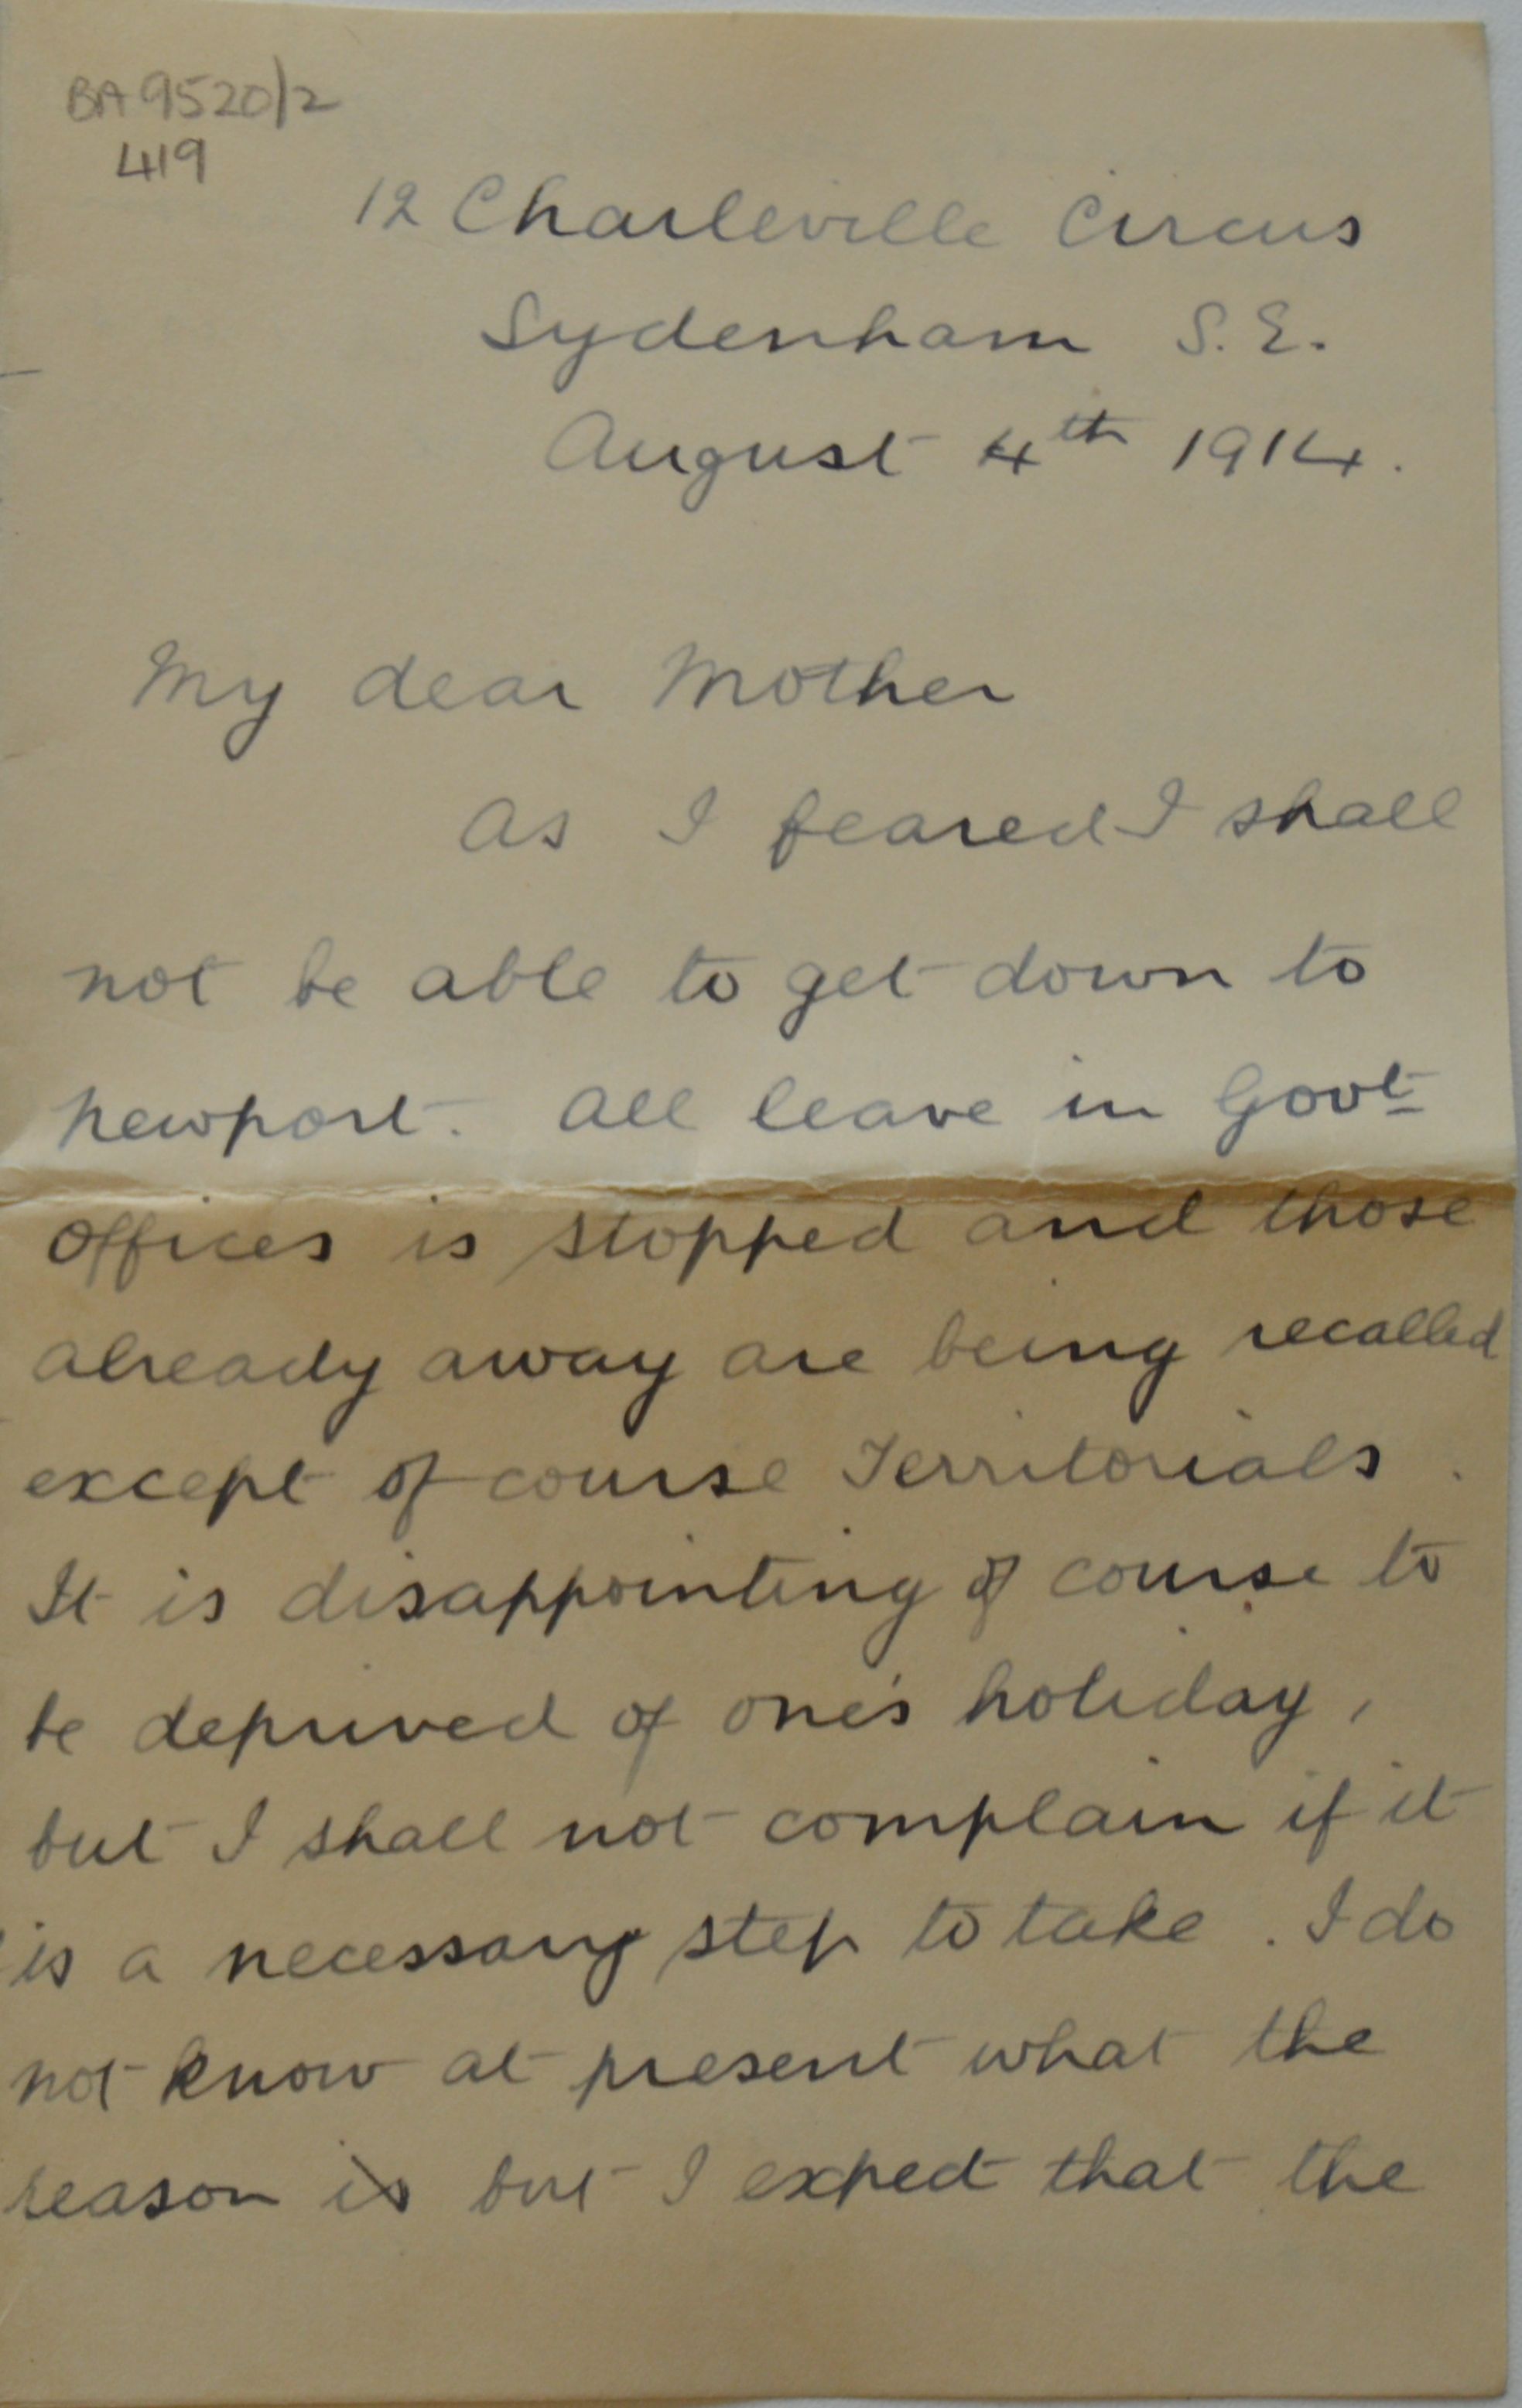 BA 9520/2
419
12 Charleville Circus
Sydenham S.E.
August 4th 1914.
My dear Mother
As I feared I shall
not be able to get down to
Newport. All leave in Govt
Offices is stopped and those
already away are being recalled
except of course Territorials.
It is disappointing of course to
be deprived of one's holiday,
but I shall not complain if it
is a necessary step to take. I do
not know at present what the
reason is but I expect that the